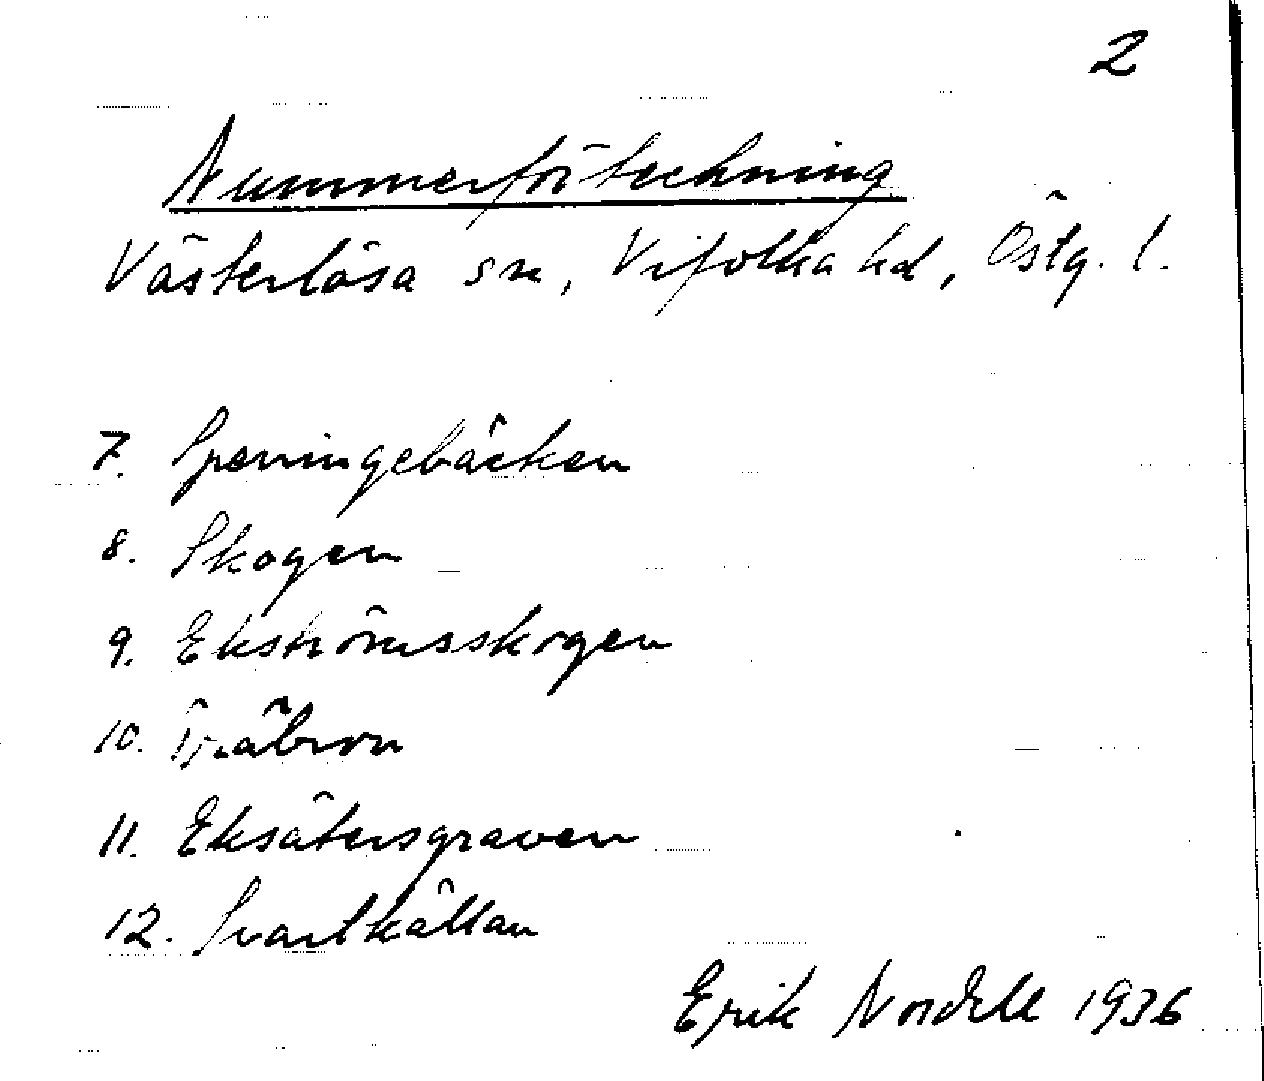 2
Nummerförteckning
Västerlösa sn, Vifolka hd, Östg. l.
7. Spenningebäcken
8. Skogen
9. Ekströmsskogen
10. Träbron
11. Eksätersgraven
12. Svartkällan
Erik Nordell 1936